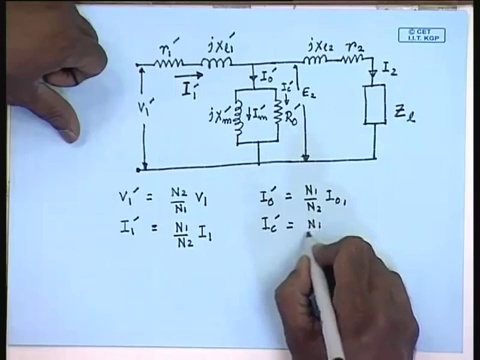 © CET
I.I.T. KGP
r₁′ jXℓ₁′ jXℓ₂ r₂
I₁′ I₀′ I₂
V₁′ jXm′ Im′ Ic′ R₀′ E₂ Zℓ
V₁′ = N₂/N₁ V₁ I₀′ = N₁/N₂ I₀₁
I₁′ = N₁/N₂ I₁ Ic′ = N₁